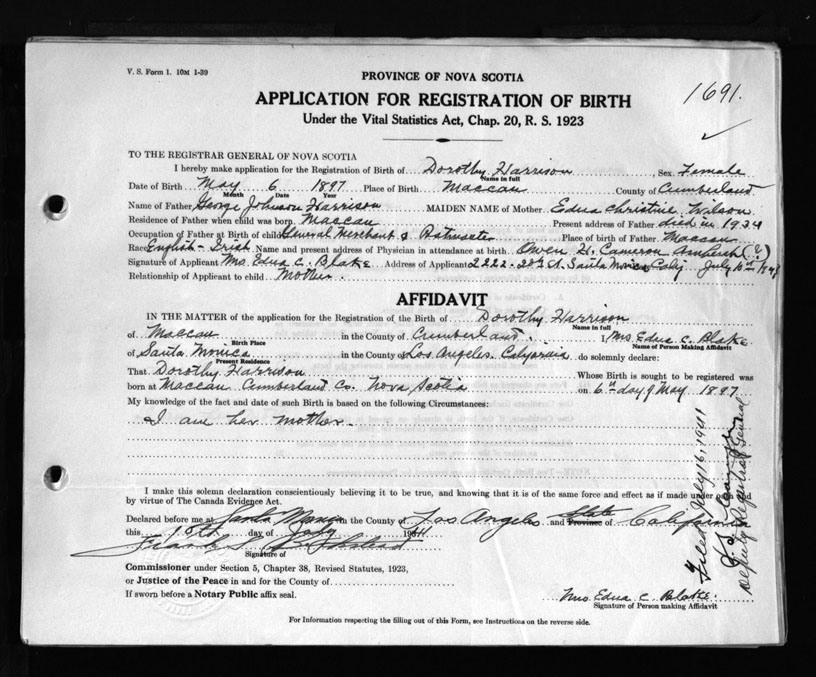 V. S. Form 1. 10M 1-39
PROVINCE OF NOVA SCOTIA
1691.
APPLICATION FOR REGISTRATION OF BIRTH
Under the Vital Statistics Act, Chap. 20, R. S. 1923
TO THE REGISTRAR GENERAL OF NOVA SCOTIA
I hereby make application for the Registration of Birth of Dorothy Harrison Sex Female
Name in full
Date of Birth May 6 1897 Place of Birth Maccan County of Cumberland
Month Date Year
Name of Father George Johnson Harrison MAIDEN NAME of Mother Edna Christine Wilson
Residence of Father when child was born Maccan Present address of Father died in 1934
Occupation of Father at Birth of child General Merchant & Place of birth of Father Maccan
Race English-Irish Name and present address of Physician in attendance at birth Owen H. Cameron Amherst
Signature of Applicant Mrs. Edna C. Blake Address of Applicant 2222-20th St. Santa Monica Calif July
Relationship of Applicant to child Mother.
AFFIDAVIT
IN THE MATTER of the application for the Registration of the Birth of Dorothy Harrison
Name in full
of Maccan in the County of Cumberland. I Mrs Edna C. Blake
Birth Place Name of Person Making Affidavit
of Santa Monica in the County of Los Angeles California do solemnly declare:
Present Residence
That Dorothy Harrison Whose Birth is sought to be registered was
born at Maccan Cumberland Co. Nova Scotia on 6th day of May 1897.
My knowledge of the fact and date of such Birth is based on the following Circumstances:
I am her mother.
I make this solemn declaration conscientiously believing it to be true, and knowing that it is of the same force and effect as if made under oath and
by virtue of The Canada Evidence Act.
Declared before me at Santa Monica in the County of Los Angeles and Province State of California
this 10th day of July 1941
Signature of
Commissioner under Section 5, Chapter 38, Revised Statutes, 1923,
or Justice of the Peace in and for the County of
If sworn before a Notary Public affix seal.
Mrs. Edna C. Blake.
Signature of Person making Affidavit
For Information respecting the filling out of this Form, see Instructions on the reverse side.
Filed July 16, 1941
Deputy Registrar General